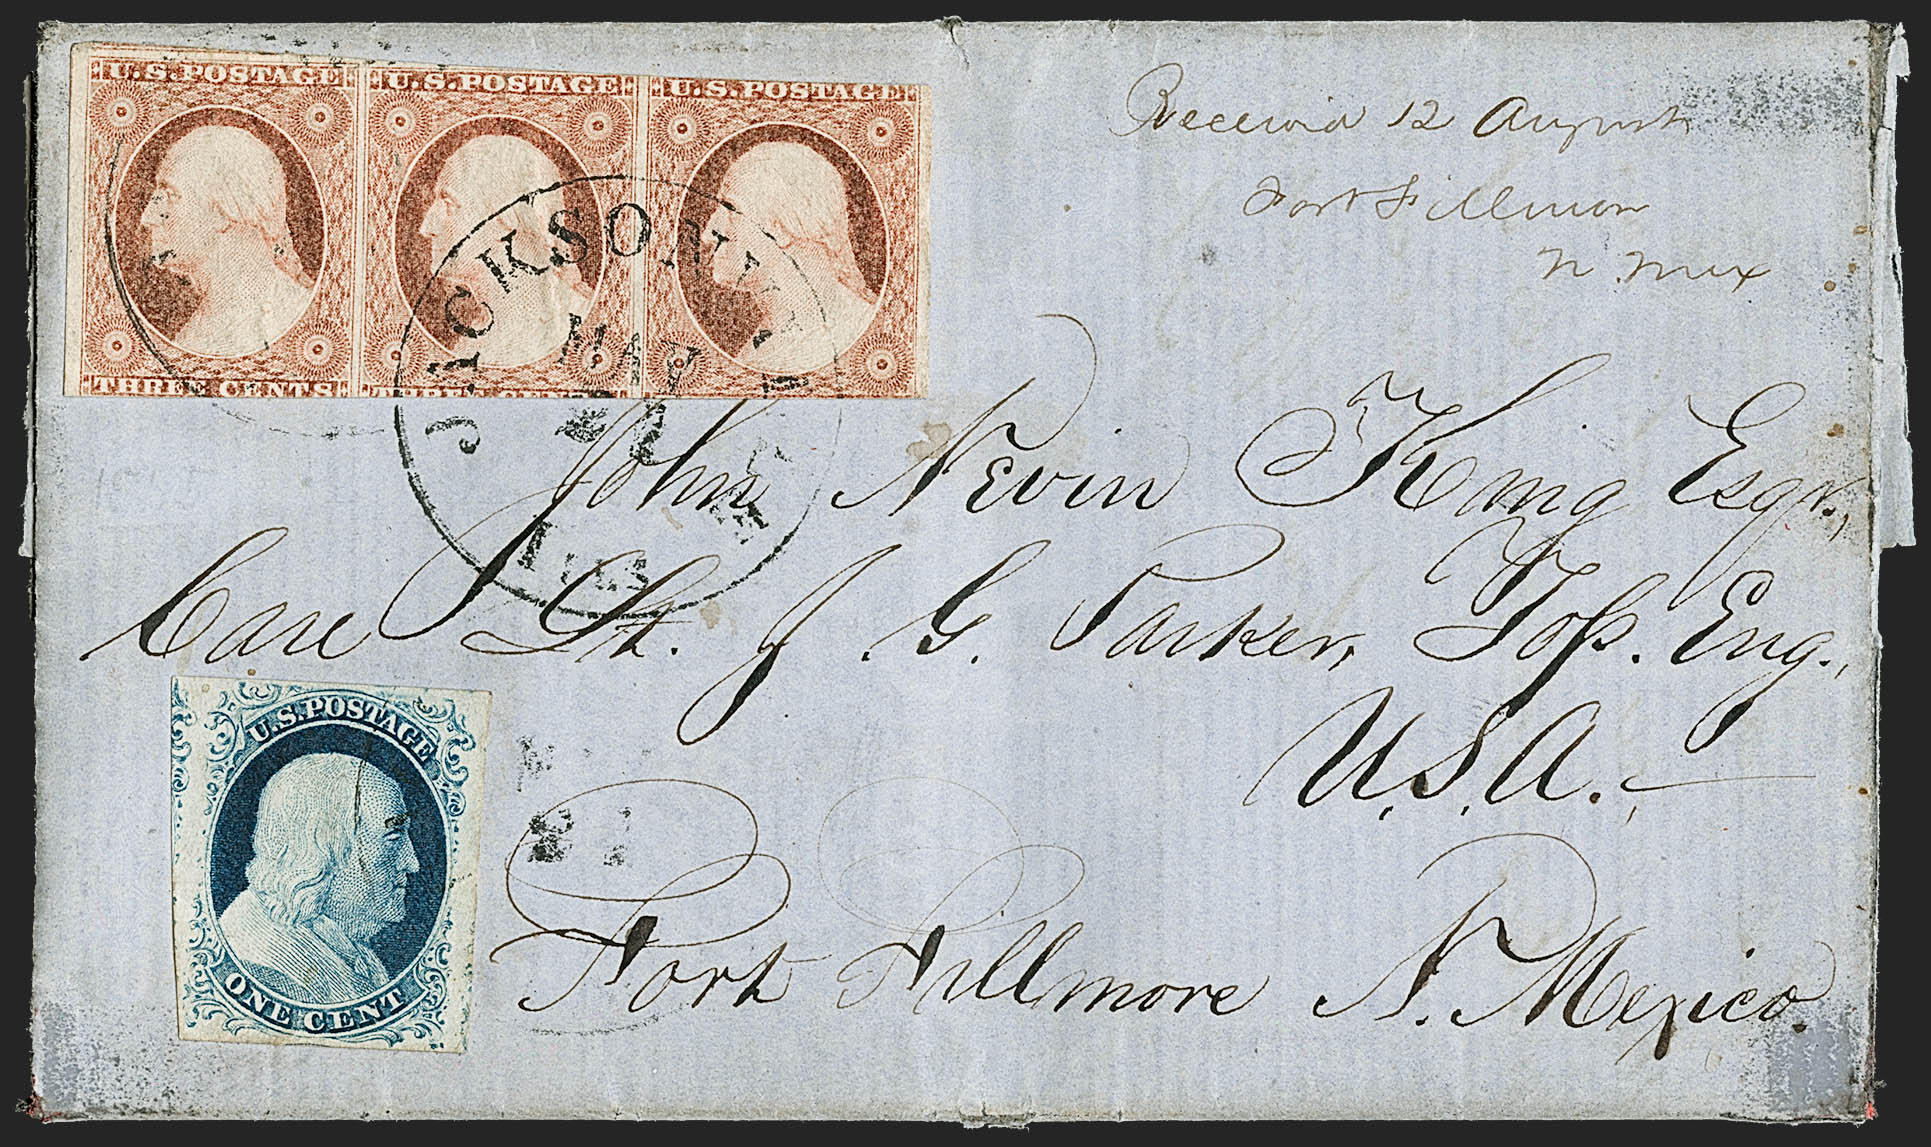 U.S.POSTAGE U.S.POSTAGE U.S.POSTAGE
THREE CENTS THREE CENTS
JACKSONV
MAY
Received 12 August
Fort Fillmore
N. Mex
John Nevin King Esqr.,
Care Lt. J. G. Parker, Top. Eng.,
U.S.A.
Fort Fillmore N. Mexico.
U.S.POSTAGE
ONE CENT